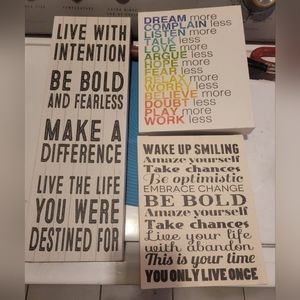 LIVE WITH
INTENTION
BE BOLD
AND FEARLESS
MAKE A
DIFFERENCE
LIVE THE LIFE
YOU WERE
DESTINED FOR
DREAM more
COMPLAIN less
LISTEN more
TALK less
LOVE more
ARGUE less
HOPE more
FEAR less
RELAX more
WORRY less
BELIEVE more
DOUBT less
PLAY more
WORK less
WAKE UP SMILING
Amaze yourself
Take chances
Be optimistic
EMBRACE CHANGE
BE BOLD
Amaze yourself
Take chances
Live your life
with abandon
This is your time
YOU ONLY LIVE ONCE